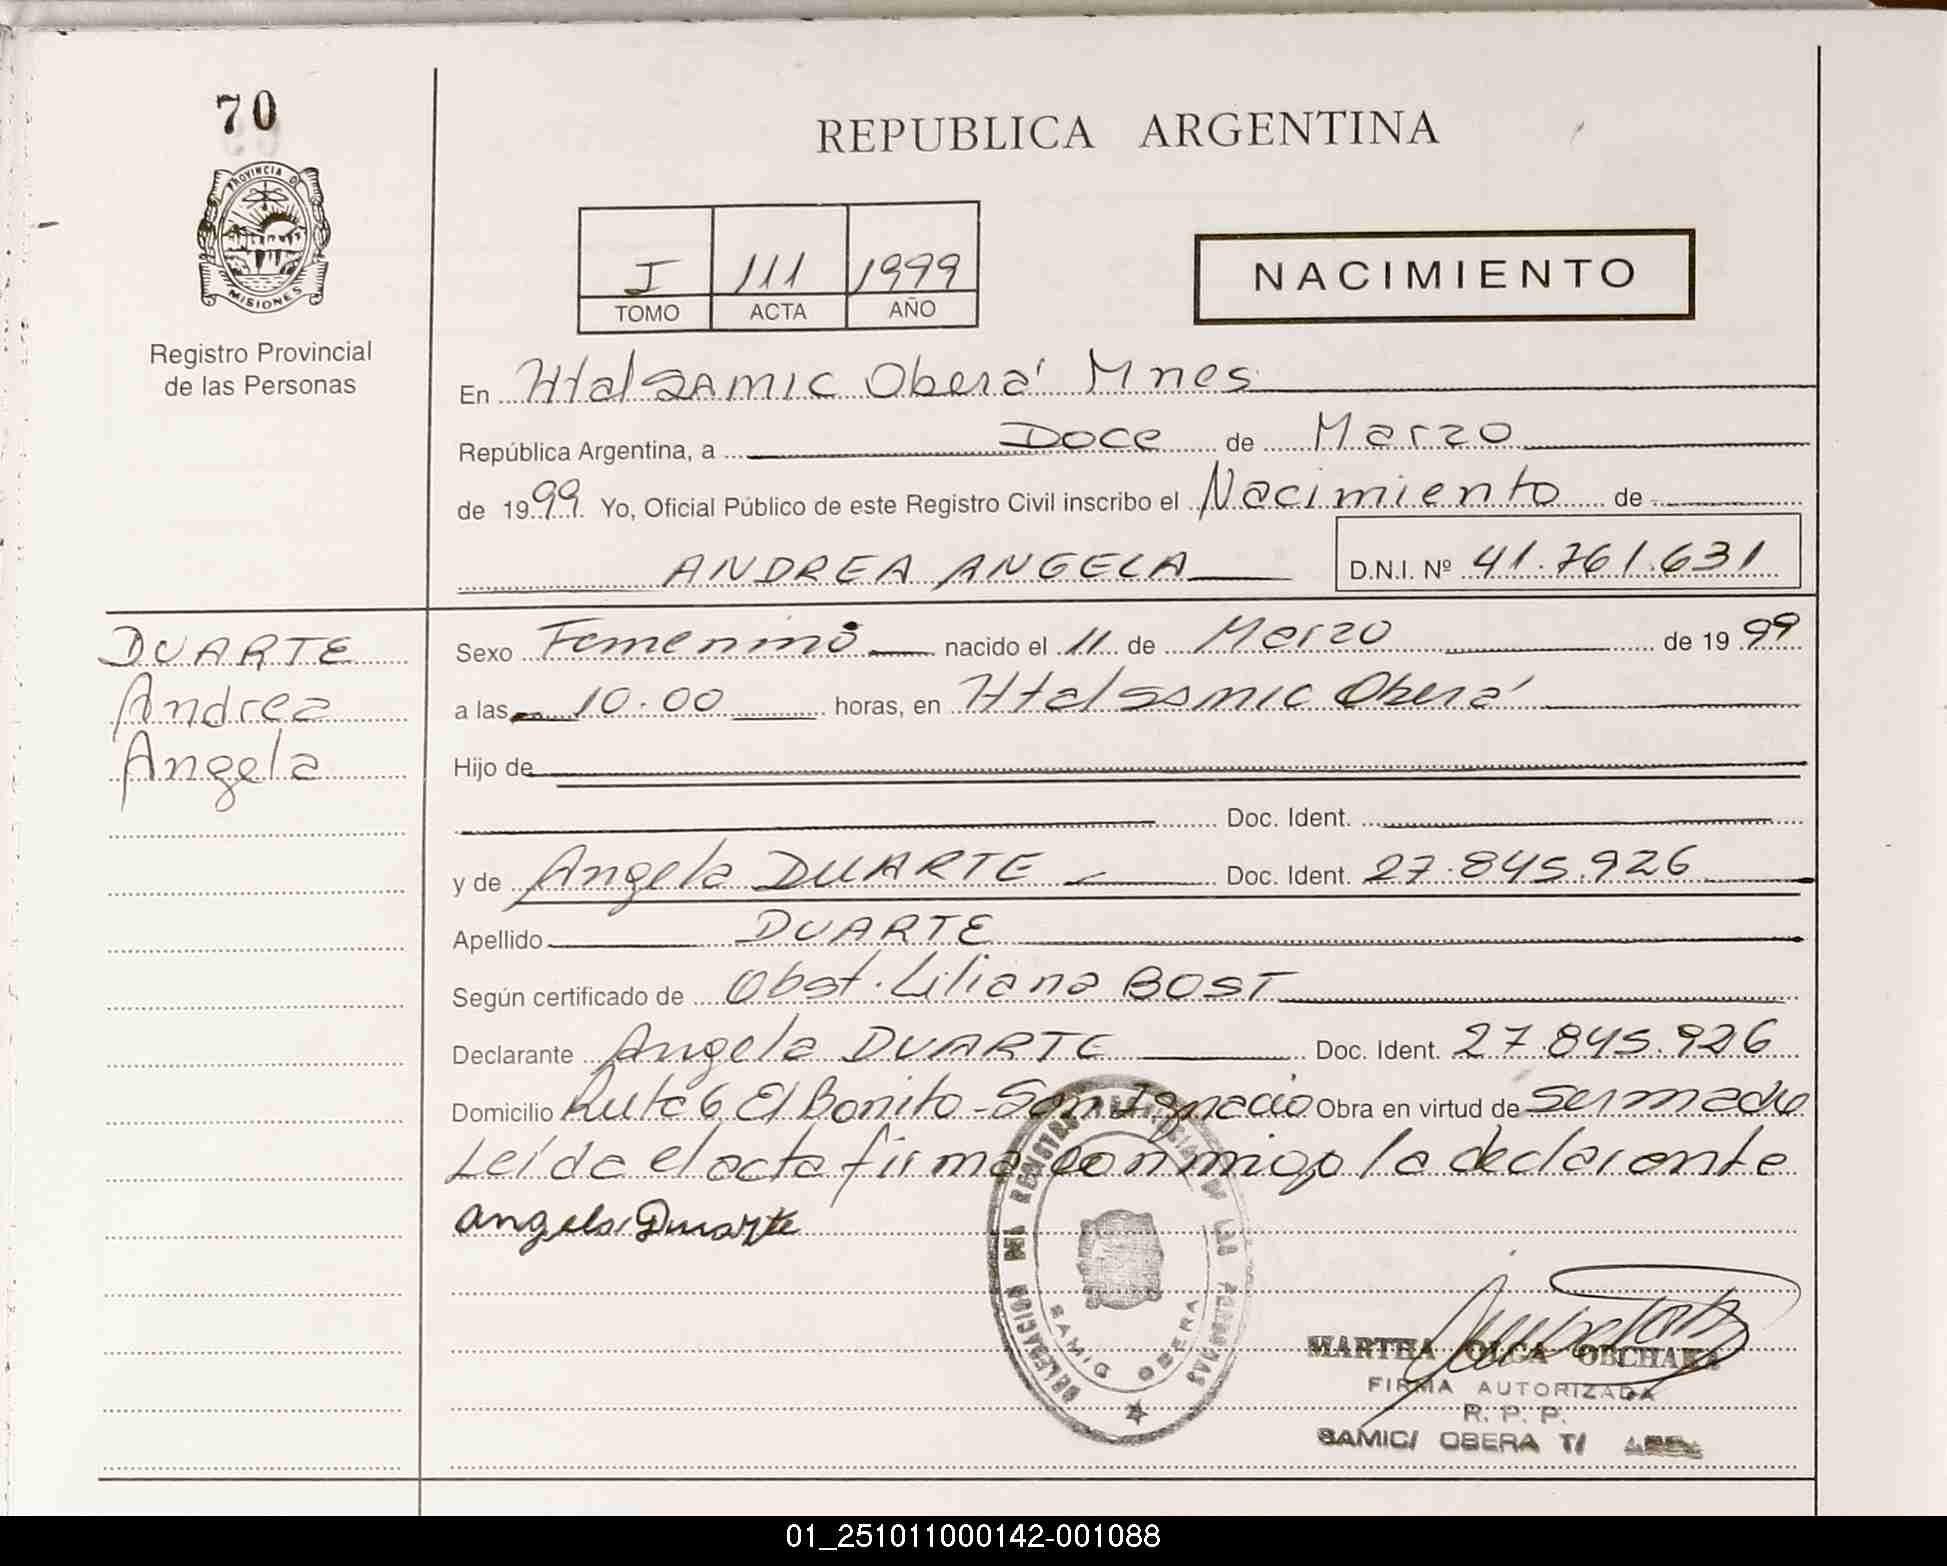 70
REPUBLICA ARGENTINA
PROVINCIA DE
MISIONES
Registro Provincial
de las Personas
I 111 1999
TOMO ACTA AÑO
NACIMIENTO
En Htal SAMIC Oberá Mnes
República Argentina, a Doce de Marzo
de 1999 Yo, Oficial Público de este Registro Civil inscribo el Nacimiento de
ANDREA ANGELA D.N.I. Nº 41.761.631
DUARTE
Andrea
Angela
Sexo Femenino nacido el 11 de Marzo de 1999
a las 10.00 horas, en Htal SAMIC Oberá
Hijo de
Doc. Ident.
y de Angela DUARTE Doc. Ident. 27.845.926
Apellido DUARTE
Según certificado de Obst. Liliana BOST
Declarante Angela DUARTE Doc. Ident. 27.845.926
Domicilio Ruta 6 El Bonito - San Ignacio Obra en virtud de ser madre
Leída el acta firma conmigo la declarante
Angela Duarte
DELEGACION DEL REGISTRO PROVINCIAL DE LAS PERSONAS
SAMIC OBERA
MARTHA OLGA
FIRMA AUTORIZADA
R. P. P.
SAMIC/ OBERA T/
01_251011000142-001088